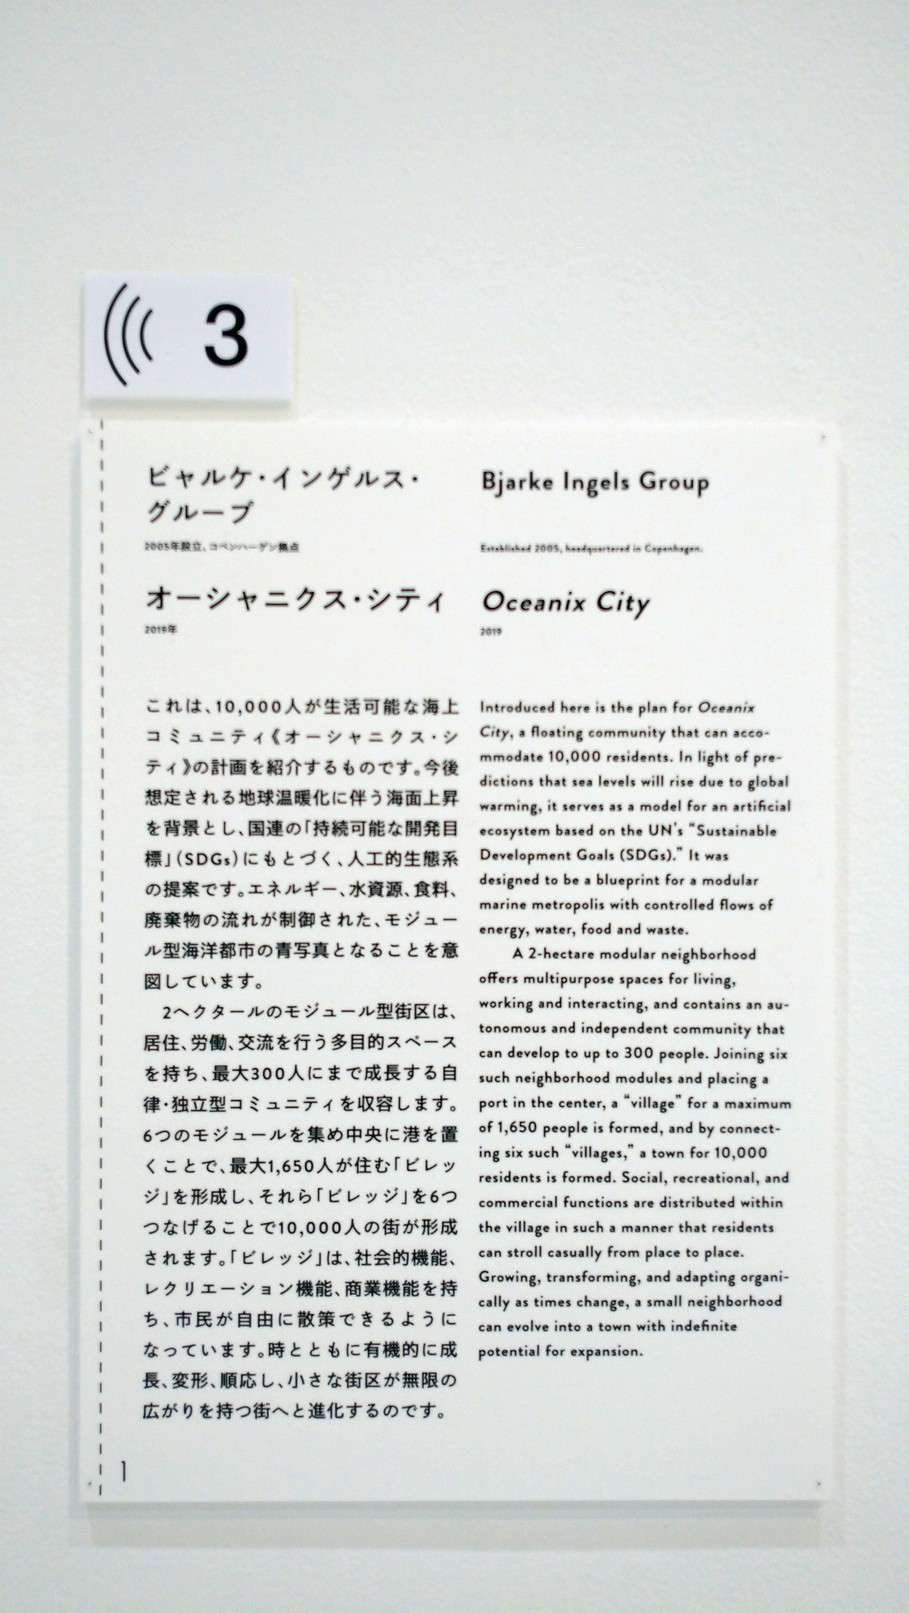 3
ビャルケ・インゲルス・
グループ
2005年設立、コペンハーゲン拠点
オーシャニクス・シティ
2019年
これは、10,000人が生活可能な海上
コミュニティ《オーシャニクス・シ
ティ》の計画を紹介するものです。今後
想定される地球温暖化に伴う海面上昇
を背景とし、国連の「持続可能な開発目
標」（SDGs）にもとづく、人工的生態系
の提案です。エネルギー、水資源、食料、
廃棄物の流れが制御された、モジュー
ル型海洋都市の青写真となることを意
図しています。
2ヘクタールのモジュール型街区は、
居住、労働、交流を行う多目的スペース
を持ち、最大300人にまで成長する自
律・独立型コミュニティを収容します。
6つのモジュールを集め中央に港を置
くことで、最大1,650人が住む「ビレッ
ジ」を形成し、それら「ビレッジ」を6つ
つなげることで10,000人の街が形成
されます。「ビレッジ」は、社会的機能、
レクリエーション機能、商業機能を持
ち、市民が自由に散策できるように
なっています。時とともに有機的に成
長、変形、順応し、小さな街区が無限の
広がりを持つ街へと進化するのです。
Bjarke Ingels Group
Established 2005, headquartered in Copenhagen.
Oceanix City
2019
Introduced here is the plan for Oceanix
City, a floating community that can acco-
mmodate 10,000 residents. In light of pre-
dictions that sea levels will rise due to global
warming, it serves as a model for an artificial
ecosystem based on the UN's “Sustainable
Development Goals (SDGs).” It was
designed to be a blueprint for a modular
marine metropolis with controlled flows of
energy, water, food and waste.
A 2-hectare modular neighborhood
offers multipurpose spaces for living,
working and interacting, and contains an au-
tonomous and independent community that
can develop to up to 300 people. Joining six
such neighborhood modules and placing a
port in the center, a “village” for a maximum
of 1,650 people is formed, and by connect-
ing six such “villages,” a town for 10,000
residents is formed. Social, recreational, and
commercial functions are distributed within
the village in such a manner that residents
can stroll casually from place to place.
Growing, transforming, and adapting organi-
cally as times change, a small neighborhood
can evolve into a town with indefinite
potential for expansion.
1